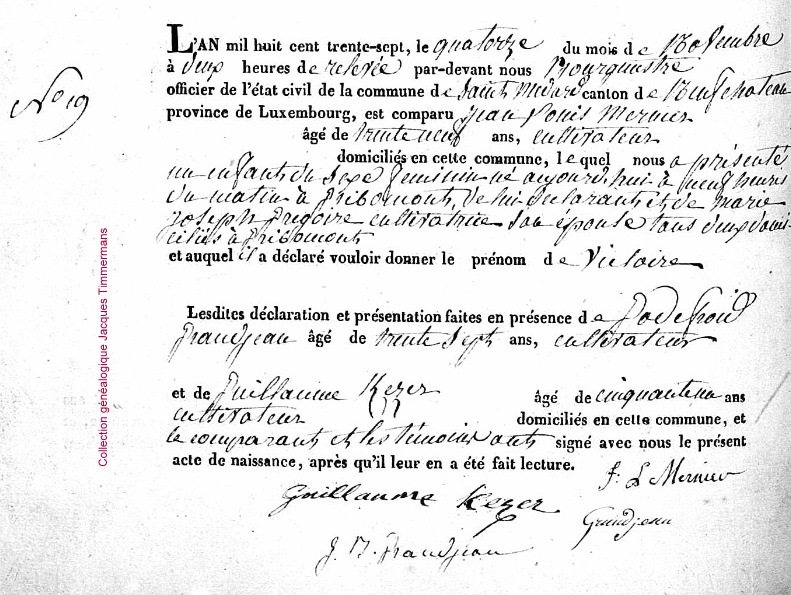 L'AN mil huit cent trente-sept, le quatorze du mois de Novembre
à deux heures de relevée par-devant nous Bourgmestre
officier de l'état civil de la commune de Saint Médard canton de Neufchateau
province de Luxembourg, est comparu Jean Louis Mernier
No 19
âgé de trente neuf ans, cultivateur
domiciliés en cette commune, lequel nous a présenté
un enfant du sexe feminin né aujourd'hui à neuf heures
du matin à Gribomont, de lui déclarant et de marie
Joseph Gregoire cultivatrice son épouse tous deux domi
ciliés à Gribomont
et auquel il a déclaré vouloir donner le prénom de Victoire
Lesdites déclaration et présentation faites en présence de Godefroid
Grandjean âgé de trente sept ans, cultivateur
et de Guillaume Kezer âgé de cinquante un ans
cultivateur domiciliés en cette commune, et
le comparant et les témoins ont signé avec nous le présent
acte de naissance, après qu'il leur en a été fait lecture.
J. L Mernier
Guillaume Kezer
Grandjean
J. B. Grandjean
Collection généalogique Jacques Timmermans